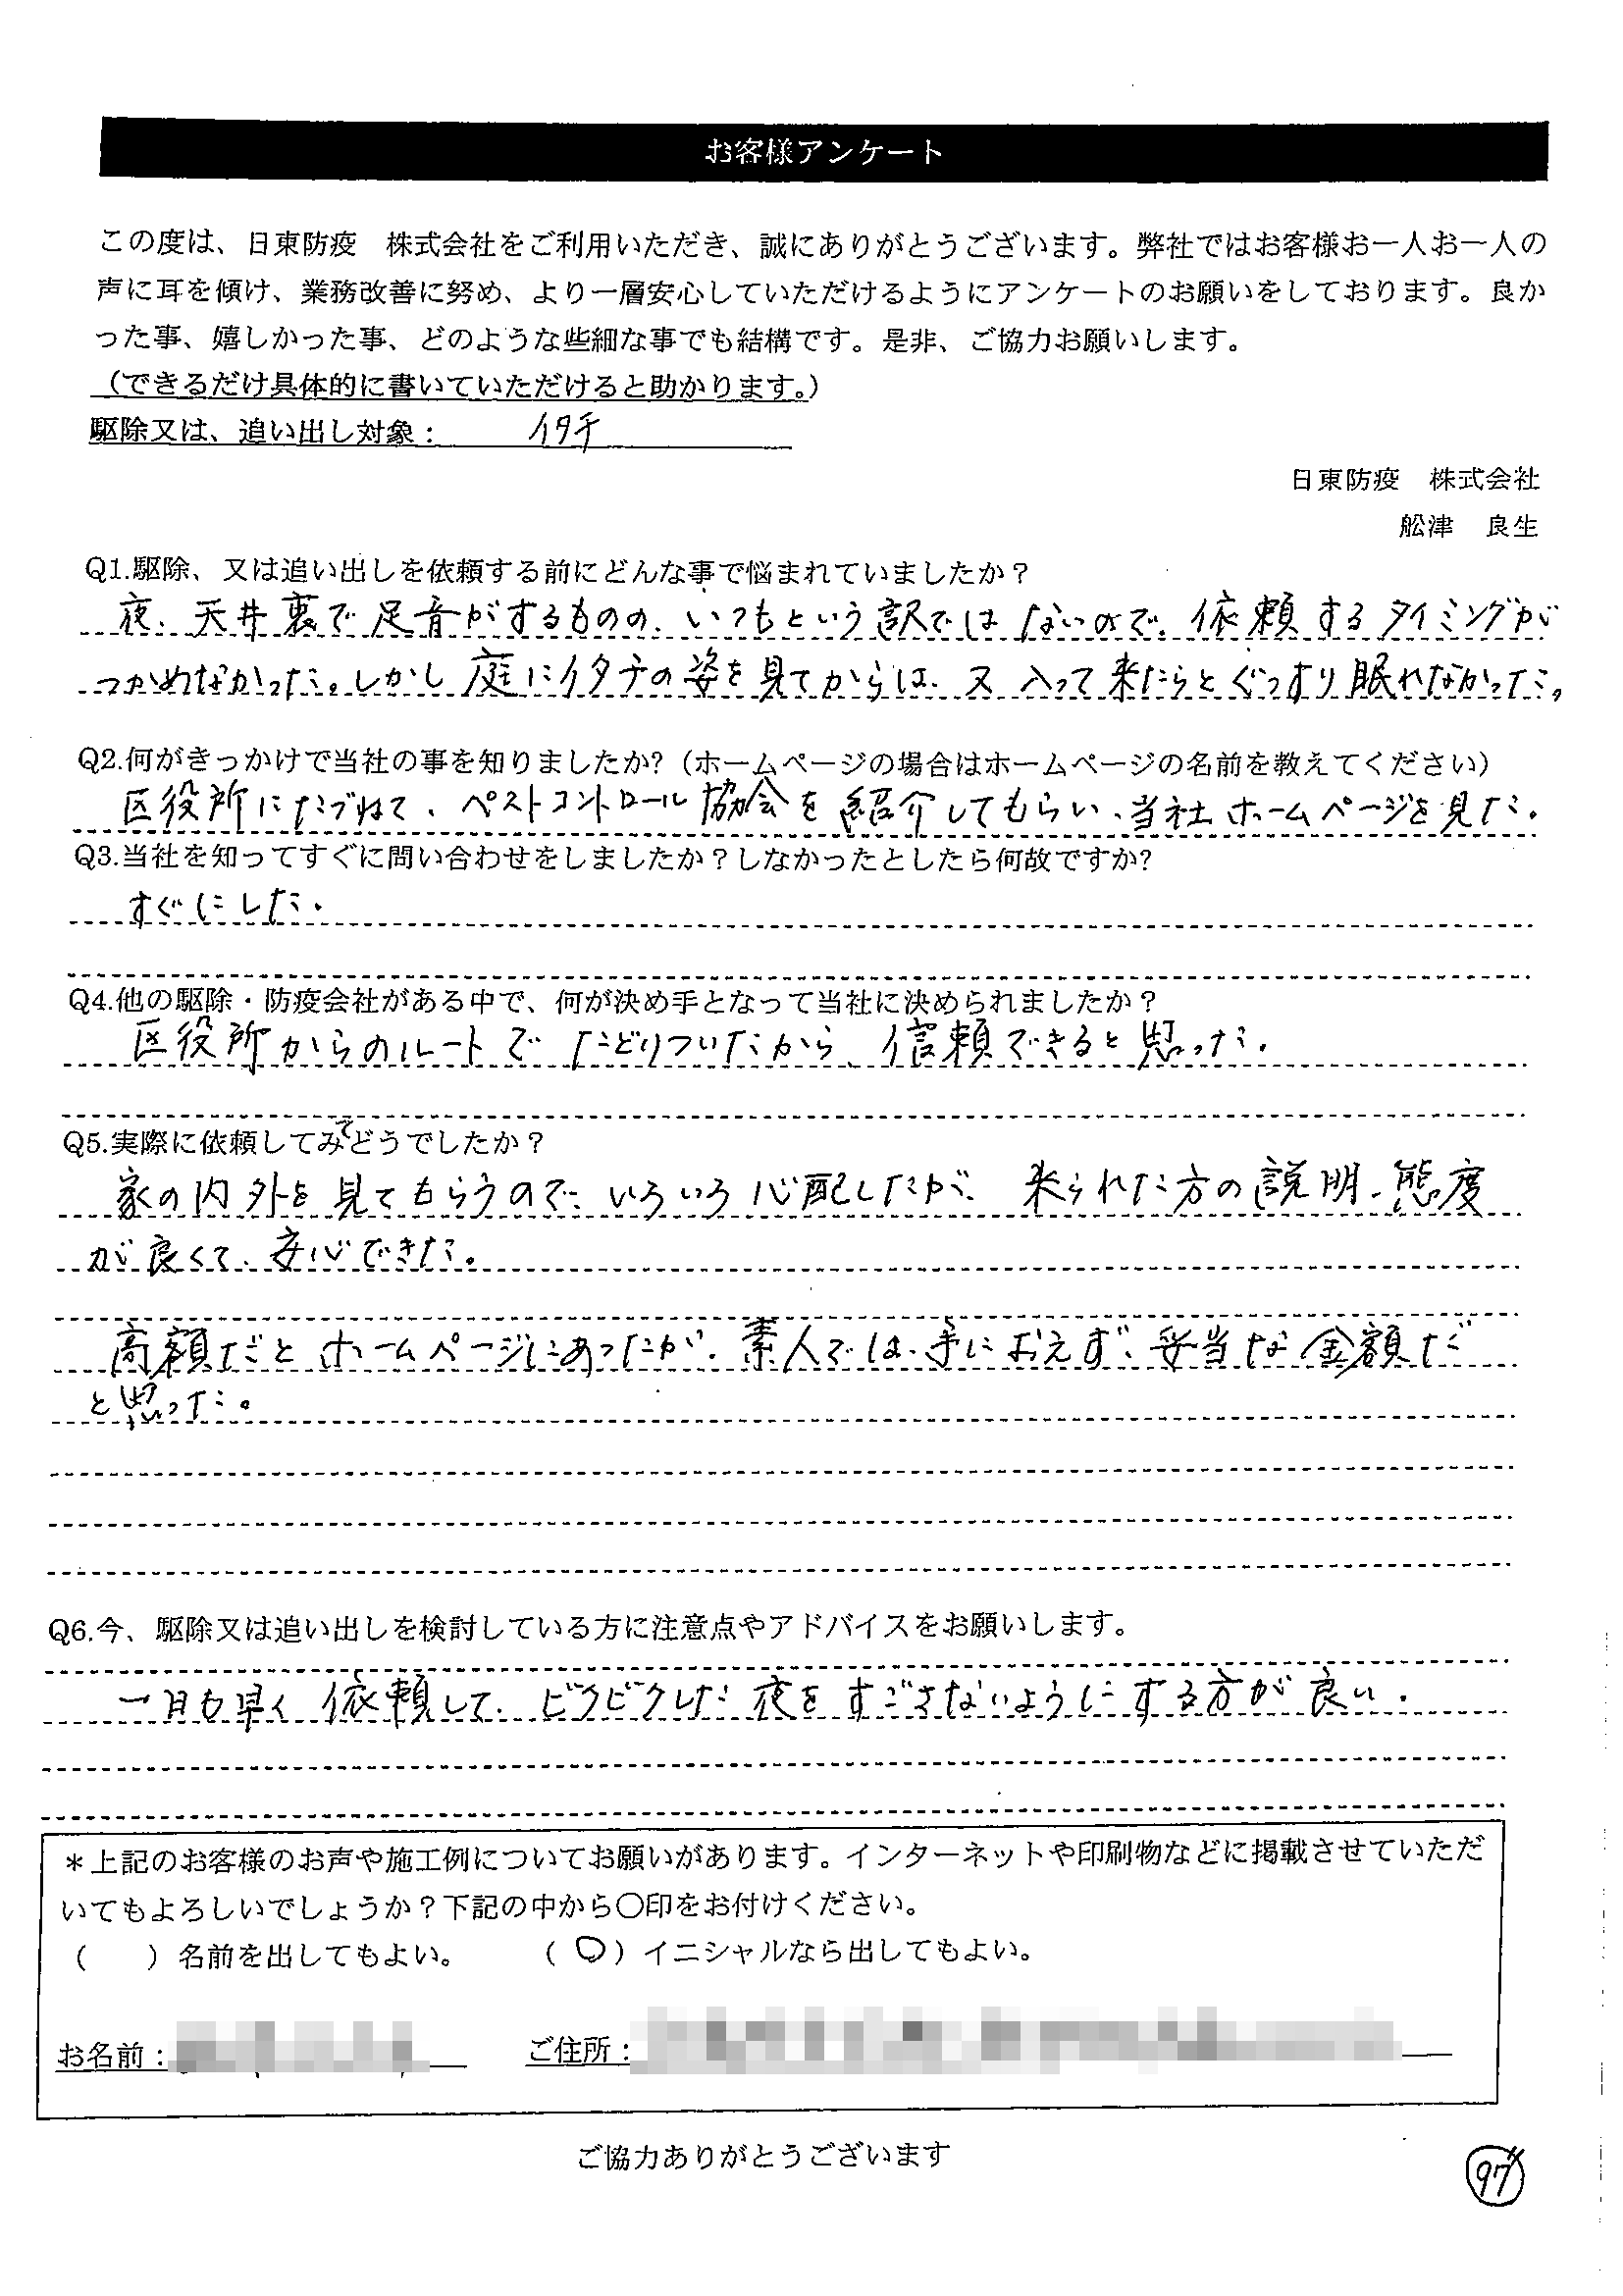 お客様アンケート
この度は、日東防疫　株式会社をご利用いただき、誠にありがとうございます。弊社ではお客様お一人お一人の
声に耳を傾け、業務改善に努め、より一層安心していただけるようにアンケートのお願いをしております。良か
った事、嬉しかった事、どのような些細な事でも結構です。是非、ご協力お願いします。
（できるだけ具体的に書いていただけると助かります。）
駆除又は、追い出し対象：イタチ
日東防疫　株式会社
舩津　良生
Q1.駆除、又は追い出しを依頼する前にどんな事で悩まれていましたか？
夜、天井裏で足音がするものの、いつもという訳ではないので、依頼するタイミングが
つかめなかった。しかし庭にイタチの姿を見てからは、又入って来たらとぐっすり眠れなかった。
Q2.何がきっかけで当社の事を知りましたか?（ホームページの場合はホームページの名前を教えてください）
区役所にたづねて、ペストコントロール協会を紹介してもらい、当社ホームページを見た。
Q3.当社を知ってすぐに問い合わせをしましたか？しなかったとしたら何故ですか?
すぐにした。
Q4.他の駆除・防疫会社がある中で、何が決め手となって当社に決められましたか？
区役所からのルートでたどりついたから、信頼できると思った。
Q5.実際に依頼してみてどうでしたか？
家の内外を見てもらうので、いろいろ心配したが、来られた方の説明、態度
が良くて、安心できた。
高額だとホームページにあったが、素人では、手におえず、妥当な金額だ
と思った。
Q6.今、駆除又は追い出しを検討している方に注意点やアドバイスをお願いします。
一日も早く依頼して、ビクビクした夜をすごさないようにする方が良い。
＊上記のお客様のお声や施工例についてお願いがあります。インターネットや印刷物などに掲載させていただ
いてもよろしいでしょうか？下記の中から〇印をお付けください。
（　　）名前を出してもよい。　　（〇）イニシャルなら出してもよい。
お名前：　　ご住所：
ご協力ありがとうございます
97